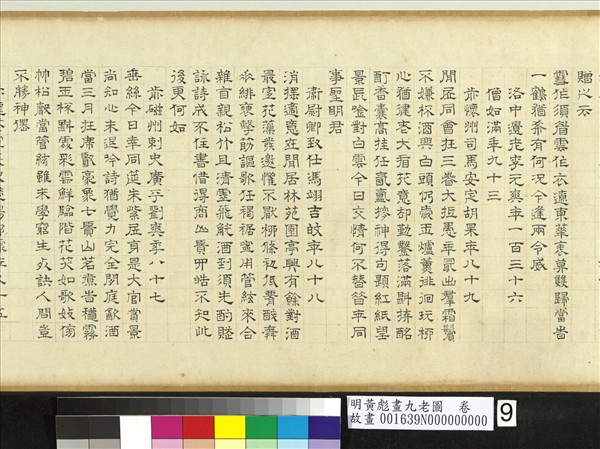 贈之云
雪作須眉雲作衣遼東華表鶴雙歸當旹
一鶴猶希有何況今逢兩令威
洛中遺老李元爽年一百三十六
僧如滿年九十三
前懷州司馬安定胡杲年八十九
閒居同會在三春大抵愚年最出羣霜鬢
不嫌杯酒興白頭仍愛玉爐薰徘徊玩柳
心猶健老大看花意却勤鑿落滿斟拚酩
酊香囊高挂任氤氳搜神得句題紅紙望
景長吟對白雲今日交情何不替旹年同
事聖明君
衞尉卿致仕馮翊吉皎年八十八
適意在閒居林苑園亭興有餘對酒
最宜花藻發邀懽不厭柳條初低腰醉舞
垂緋褎擊筑謳歌任褐裾寧用管絃來合
雜自親松竹且清虛飛觥酒到須先酌賦
詠詩成不住書借問商山賢四皓不知此
後更何如
前磁州刺史廣平劉真年八十七
垂絲今日幸同筵朱紫居身是大官賞景
尚知心未退吟詩猶覺力完全閑庭飲酒
當三月在席揮毫象七賢山茗煮旹秋霧
碧玉杯斟處彩霞鮮臨階花笑如歌妓傍
竹松聲當管絃雖未學窮生死訣人間豈
不勝神仙
明黃彪畫九老圖　卷
故畫 001639N000000000
9